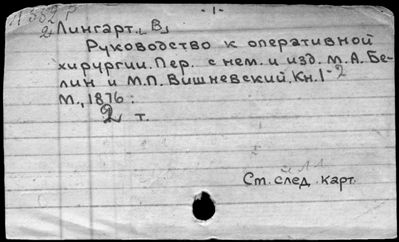 - 1 -
Лингарт, В.
Руководство к оперативной
хирургии. Пер. с нем. и изд. М.А. Бе-
лин и М.П. Вишневский. Кн. 1-2
М., 1876.
2 т.
Ст. след. карт.